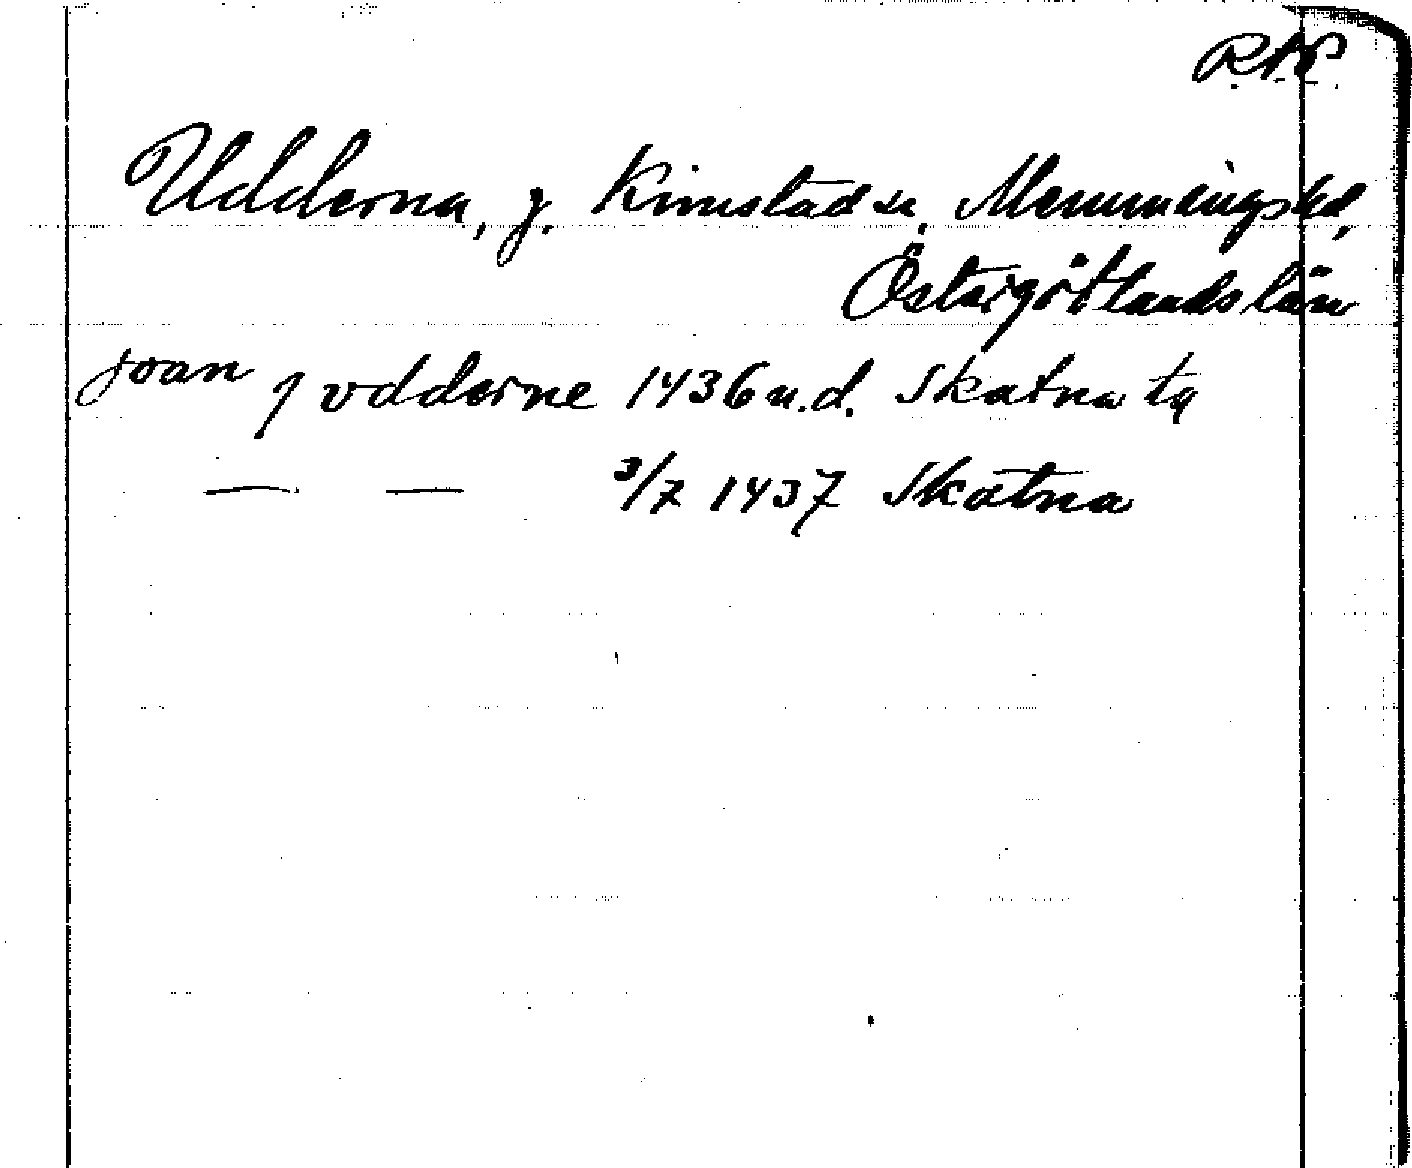 RAP
Udderna, g. Kimstad sn, Memmingshd,
Östergötlands län
joan j vdderne 1436 u.d. Skatna tg
— — 3/7 1437 Skatna